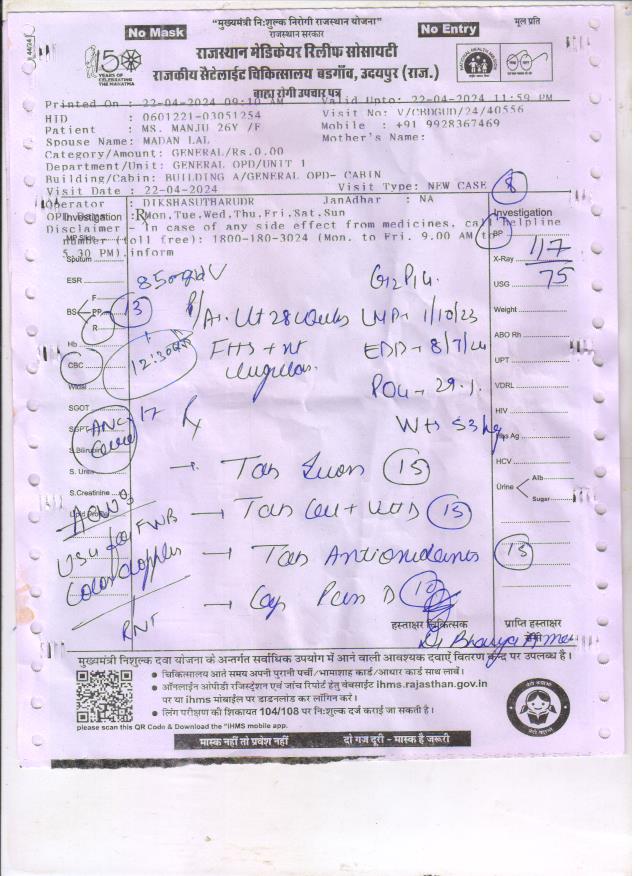 "मुख्यमंत्री नि:शुल्क निरोगी राजस्थान योजना"
मूल प्रति
No Mask
राजस्थान सरकार
No Entry
राजस्थान मेडिकेयर रिलीफ सोसायटी
राजकीय सैटेलाईट चिकित्सालय बडगाँव, उदयपुर (राज.)
150
YEARS OF
CELEBRATING
THE MAHATMA
बाह्य रोगी उपचार पत्र
Printed On : 22-04-2024 09:10 AM Valid Upto: 22-04-2024 11:59 PM
HID : 0601221-03051254 Visit No: V/CBDGUD/24/40556
Patient : MS. MANJU 26Y /F Mobile : +91 9928367469
Spouse Name: MADAN LAL Mother's Name:
Category/Amount: GENERAL/Rs.0.00
Department/Unit: GENERAL OPD/UNIT 1
Building/Cabin: BUILDING A/GENERAL OPD- CABIN
Visit Date : 22-04-2024 Visit Type: NEW CASE 8
Operator : DIKSHASUTHARUDR JanAadhar : NA
OPD Days : Mon,Tue,Wed,Thu,Fri,Sat,Sun
Disclaimer - In case of any side effect from medicines, call helpline
number (toll free): 1800-180-3024 (Mon. to Fri. 9.00 AM to
5.30 PM).inform
Investigation
Sputum
ESR
BS F
PP
R
Hb
CBC
Widal
SGOT
SGPT
S.Bilirubin
S. Urea
S.Creatinine
Investigation
BP 117
75
X-Ray
USG
Weight
ABO Rh
UPT
VDRL
HIV
Hbs Ag
HCV
Urine Alb
Sugar
G2P1L1
13
P/A: Ut 28 weeks LMP- 1/10/23
12:30
FHS + nt EDD - 8/7/24
POG - 29.1
17
ANC care
Rx
Wt 53 kg
→ Tab Iron 15
→ Tab Cal + Vit D 15
USG for FWB
Color doppler
→ Tab Antioxidants 15
→ Cap Pan D 10
RNT
हस्ताक्षर चिकित्सक
प्राप्ति हस्ताक्षर
रोगी
मुख्यमंत्री निशुल्क दवा योजना के अन्तर्गत सर्वाधिक उपयोग में आने वाली आवश्यक दवाऐं वितरण केन्द्र पर उपलब्ध है।
• चिकित्सालय आते समय अपनी पुरानी पर्ची/भामाशाह कार्ड/आधार कार्ड साथ लाबें।
• ऑनलाईन ओपीडी रजिस्ट्रेशन एवं जॉच रिपोर्ट हेतु वेबसाईट ihms.rajasthan.gov.in
पर या ihms मोबाईल पर डाउनलोड कर लॉगिन करें।
• लिंग परीक्षण की शिकायत 104/108 पर नि:शुल्क दर्ज कराई जा सकती है।
please scan this QR Code & Download the "IHMS mobile app.
मास्क नहीं तो प्रवेश नहीं दो गज दूरी - मास्क है जरूरी